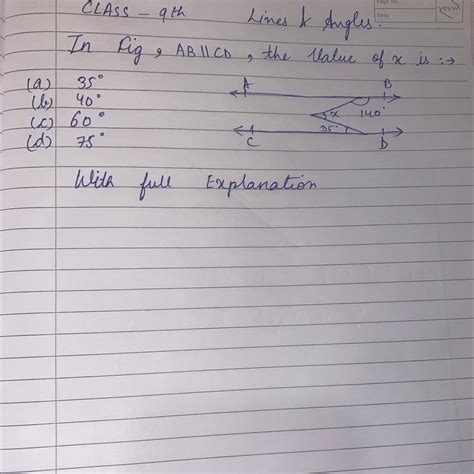 CLASS - 9th Lines & Angles.
Page No.
YOUVA
In Fig, AB||CD, the Value of x is :→
(a) 35°
(b) 40°
(c) 60°
(d) 75°
A B
x 140°
35°
C D
With full Explanation